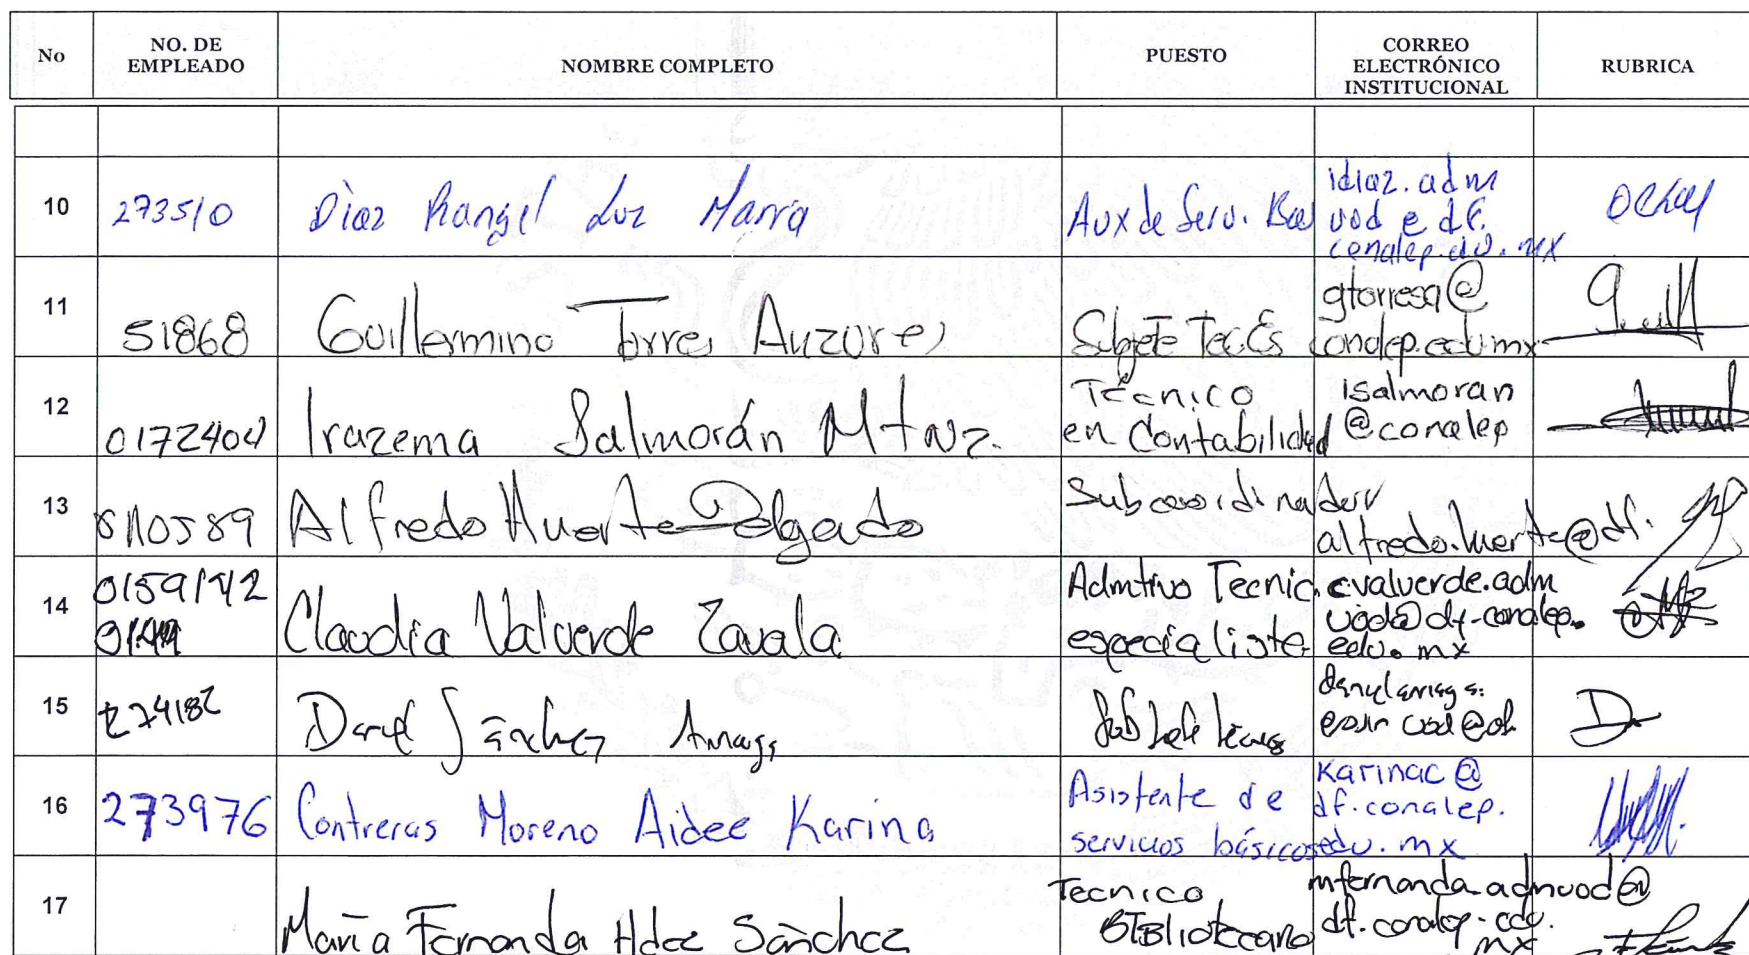 No NO. DE EMPLEADO NOMBRE COMPLETO PUESTO CORREO ELECTRÓNICO INSTITUCIONAL RUBRICA
10 273510 Dìaz Rangel Luz María Aux de Serv. idiaz.adm
uod e df.
conalep.edu.mx
11 51868 Guillermino Torres Auzures Subjefe Tec Es gtorresa@
conalep.edu.mx
12 0172404 Irazema Salmorán Mtnz. Técnico
en Contabilidad Isalmoran
@conalep
13 Alfredo Huerta Delgado Subcoordinador
alfredo.huerta@df.
14 0159142
Claudia Valverde Zavala Admtivo Tecnic.
especialista cvalverde.adm
uod@df.conalep.
edu.mx
15 274182 Sánchez
16 273976 Contreras Moreno Aidee Karina Asistente de
servicios básicos Karinac@
df.conalep.
edu.mx
17 María Fernanda Hdez Sánchez Tecnico
BIBliotecario mfernanda.admuod@
df.conalep.edu.
mx